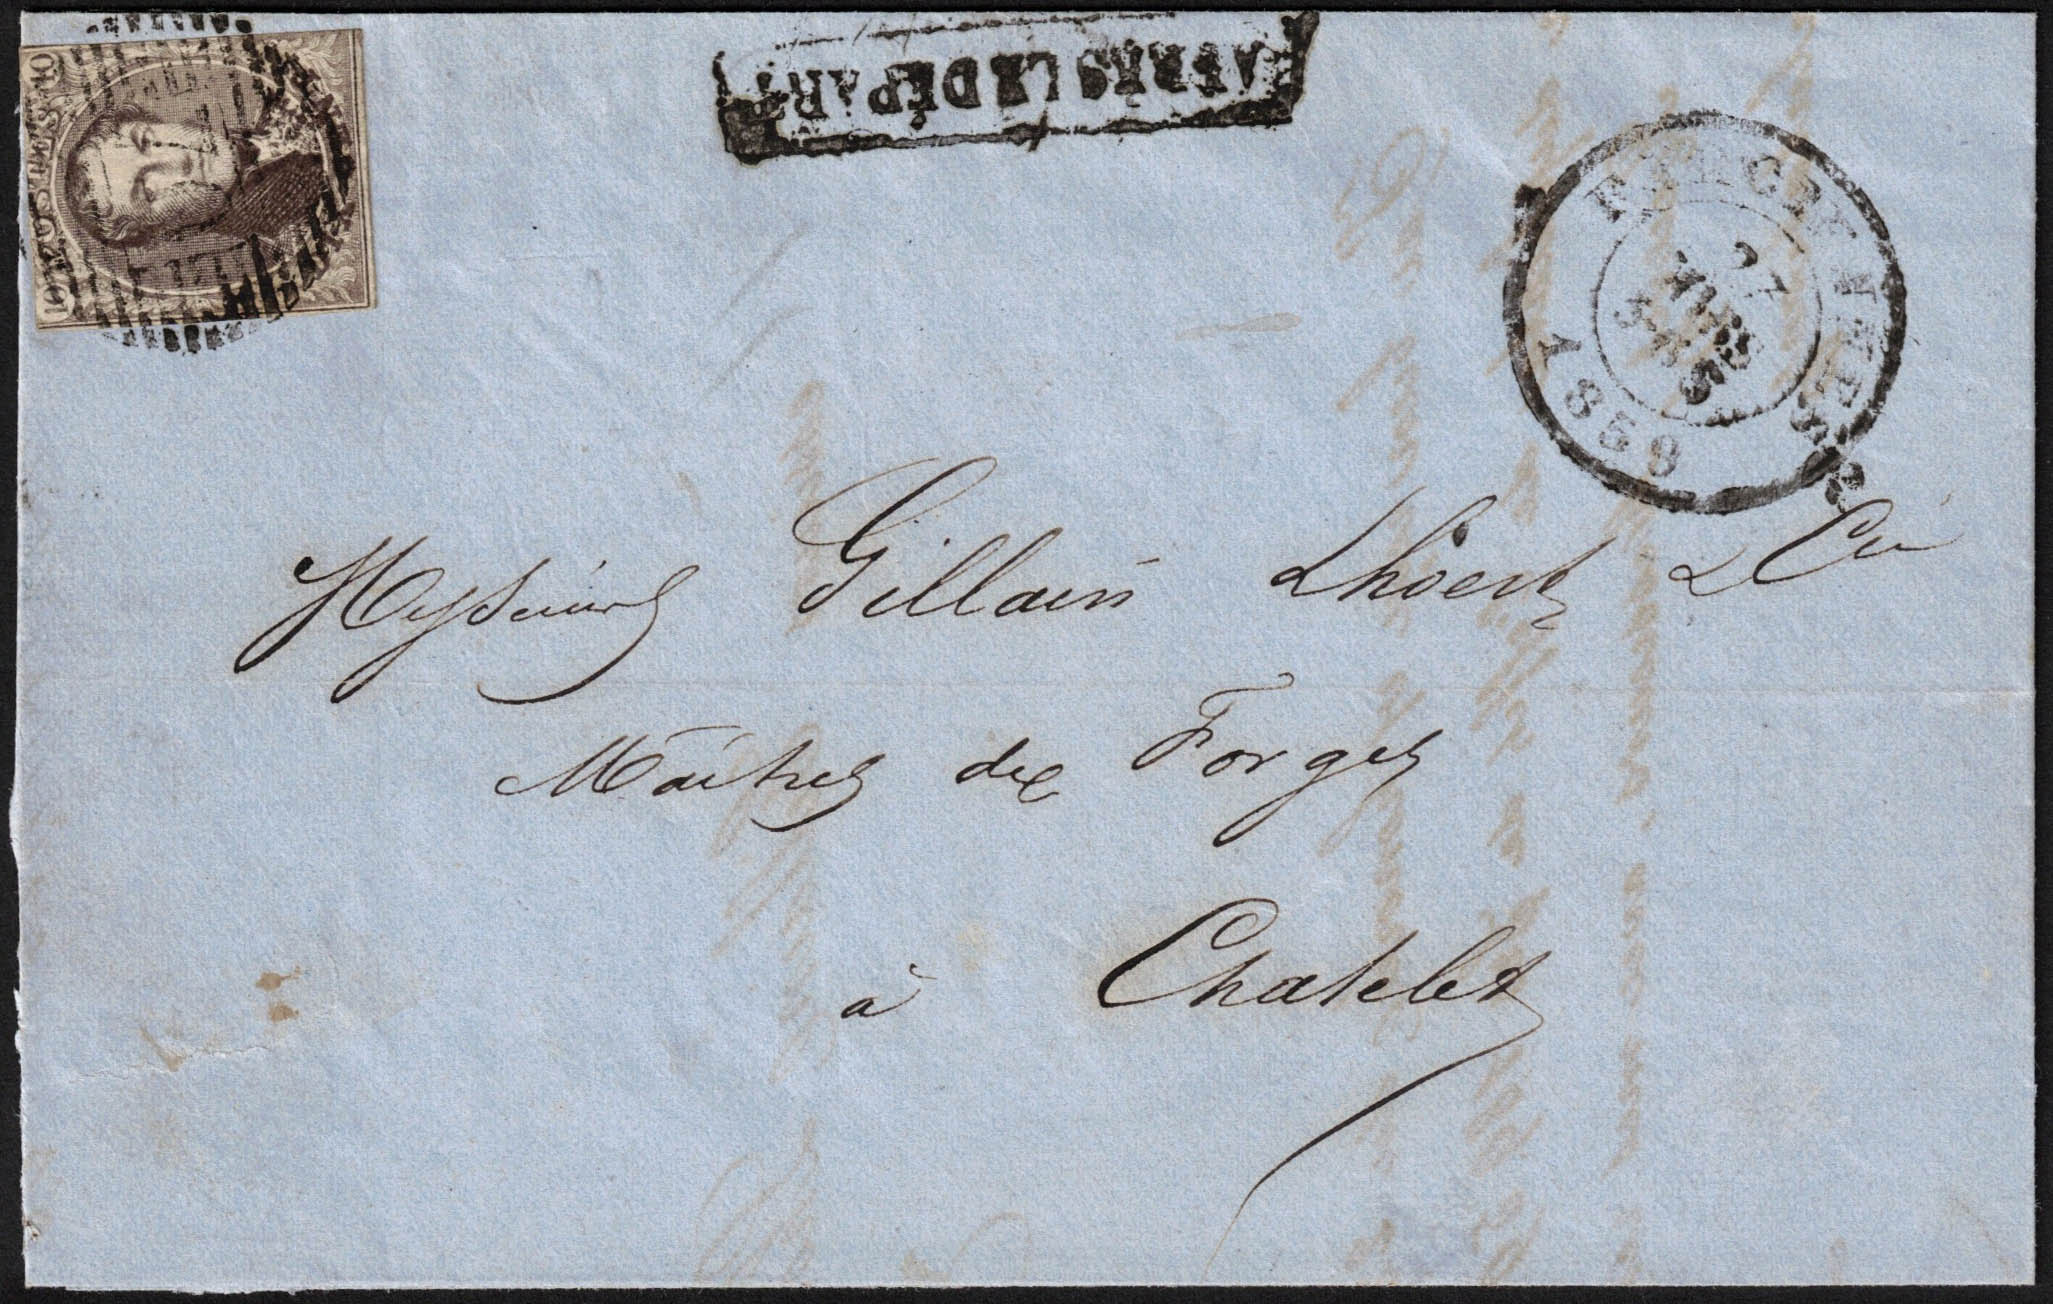 APRÈS LE DÉPART
27
MARS
3-S
1858
10 10
Messieurs Gillain Lhoest & Cie
Maîtres de Forges
à Chatelet